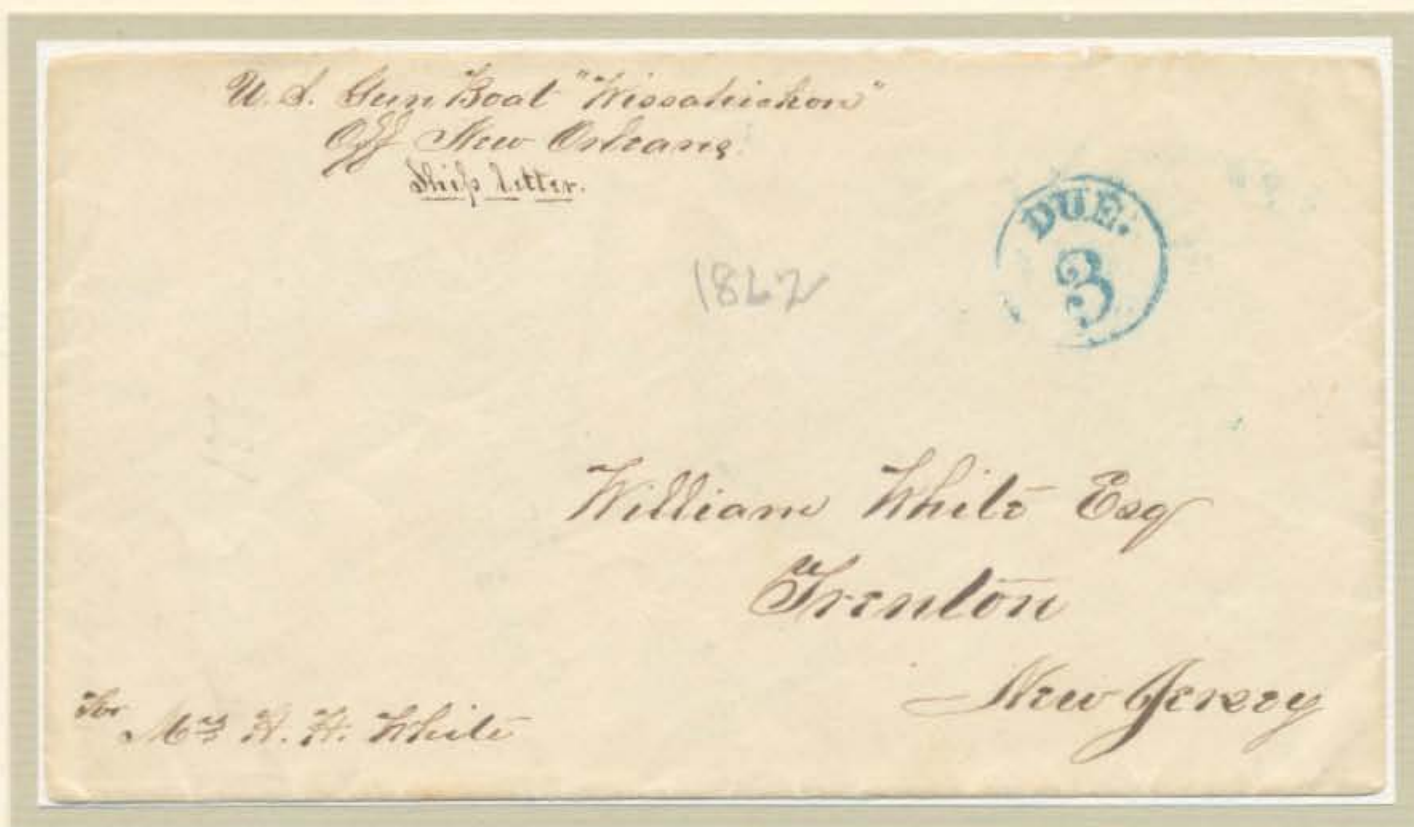 U. S. Gun Boat "Wissahickon"
Off New Orleans
Ship Letter.
DUE.
3
1862
William White Esq
Trenton
New Jersey
For
Mrs H. H. White